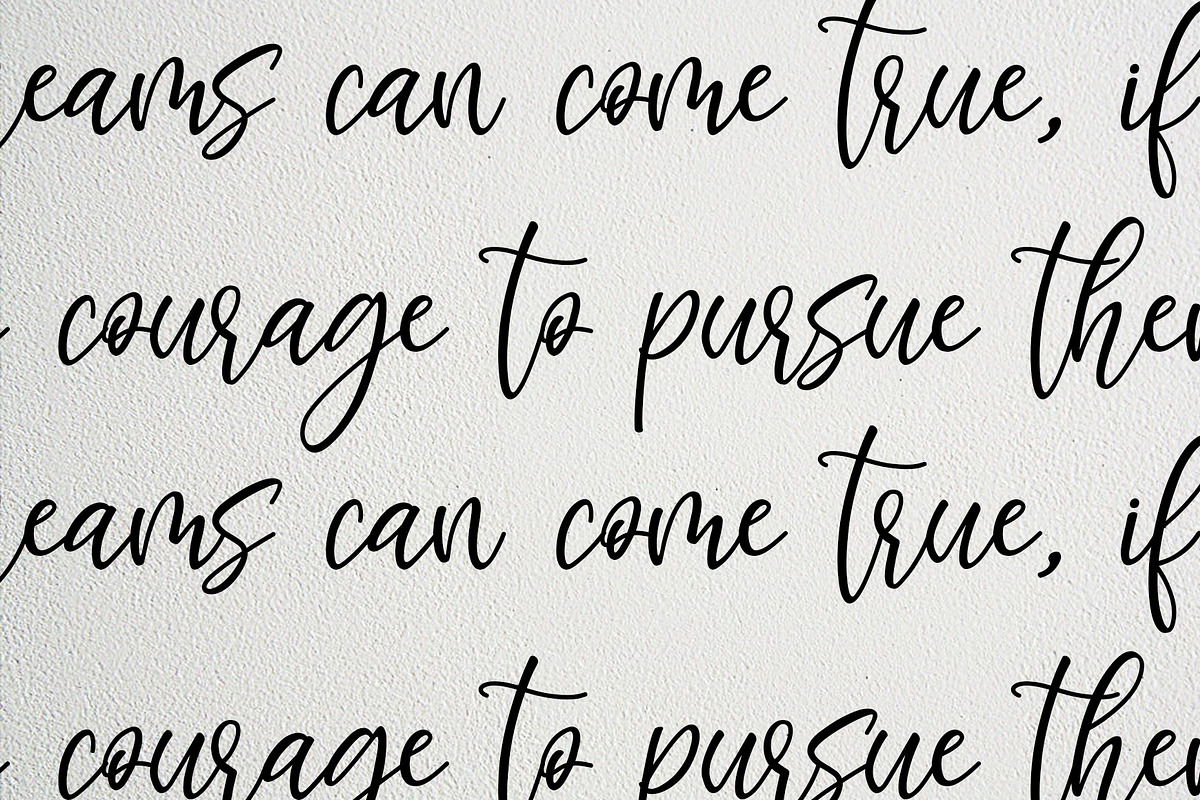 eams can come true, if
courage to pursue them
eams can come true, if
courage to pursue them